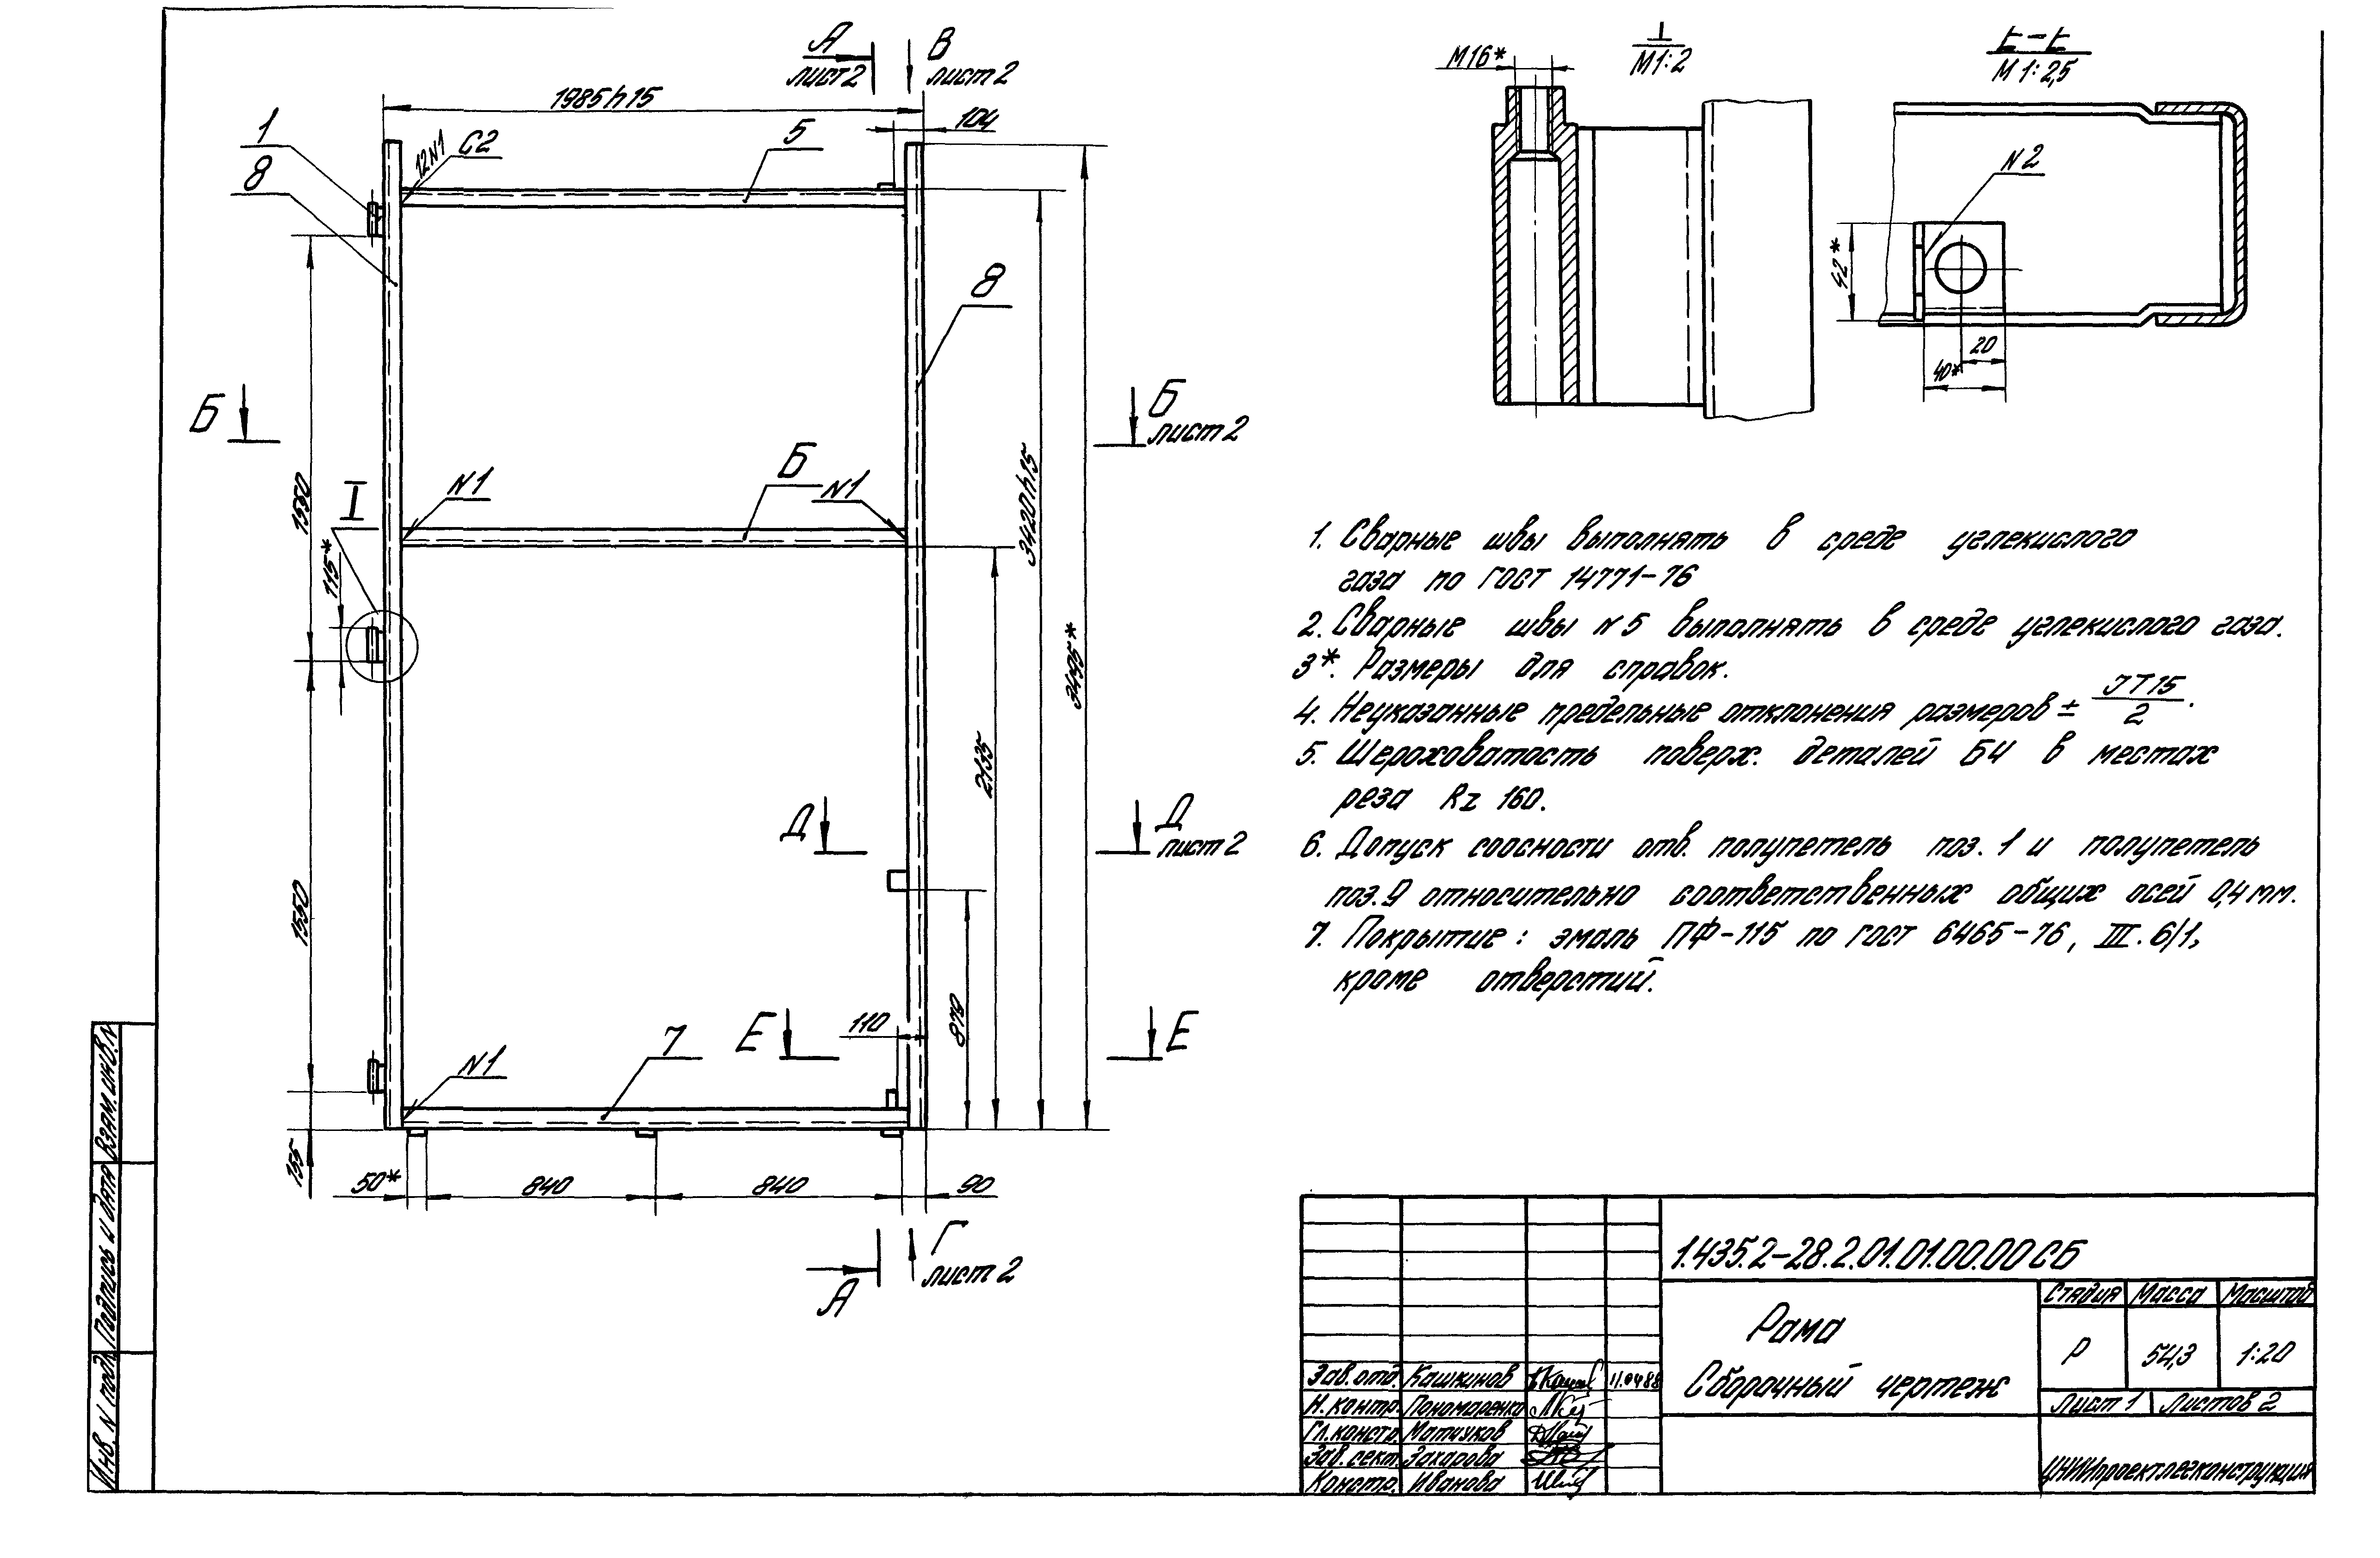 А
лист 2
В
лист 2
1985h15
104
1
8
12 N1
С2
5
8
Б
Б
лист 2
1550
I
115*
N1
Б
N1
3420h15
3495*
2435
Д
Д
лист 2
1550
N1
7
Е
110
870
Е
155
50*
840
840
90
А
Г
лист 2
М16*
I
М1:2
Е-Е
М1:2,5
N2
42*
20
40*
1. Сварные швы выполнять в среде углекислого
газа по ГОСТ 14771-76
2. Сварные швы N5 выполнять в среде углекислого газа.
3*. Размеры для справок.
4. Неуказанные предельные отклонения размеров ± JT15/2.
5. Шероховатость поверх. деталей БЧ в местах
реза Rz 160.
6. Допуск соосности отв. полупетель поз. 1 и полупетель
поз. 9 относительно соответственных общих осей 0,4 мм.
7. Покрытие: эмаль ПФ-115 по ГОСТ 6465-76, III. 6/1,
кроме отверстий.
Взам. инв. N
Подпись и дата
Инв. N подл.
1.435.2-28.2.01.01.00.00 СБ
Рама
Сборочный чертеж
Стадия Масса Масштаб
Р 54,3 1:20
Лист 1 Листов 2
ЦНИИпроектлегконструкция
Зав. отд. Кашкинов 11.04.88
Н. контр. Пономаренко
Гл. констр. Матчуков
Зав. сект. Захарова
Констр. Иванова